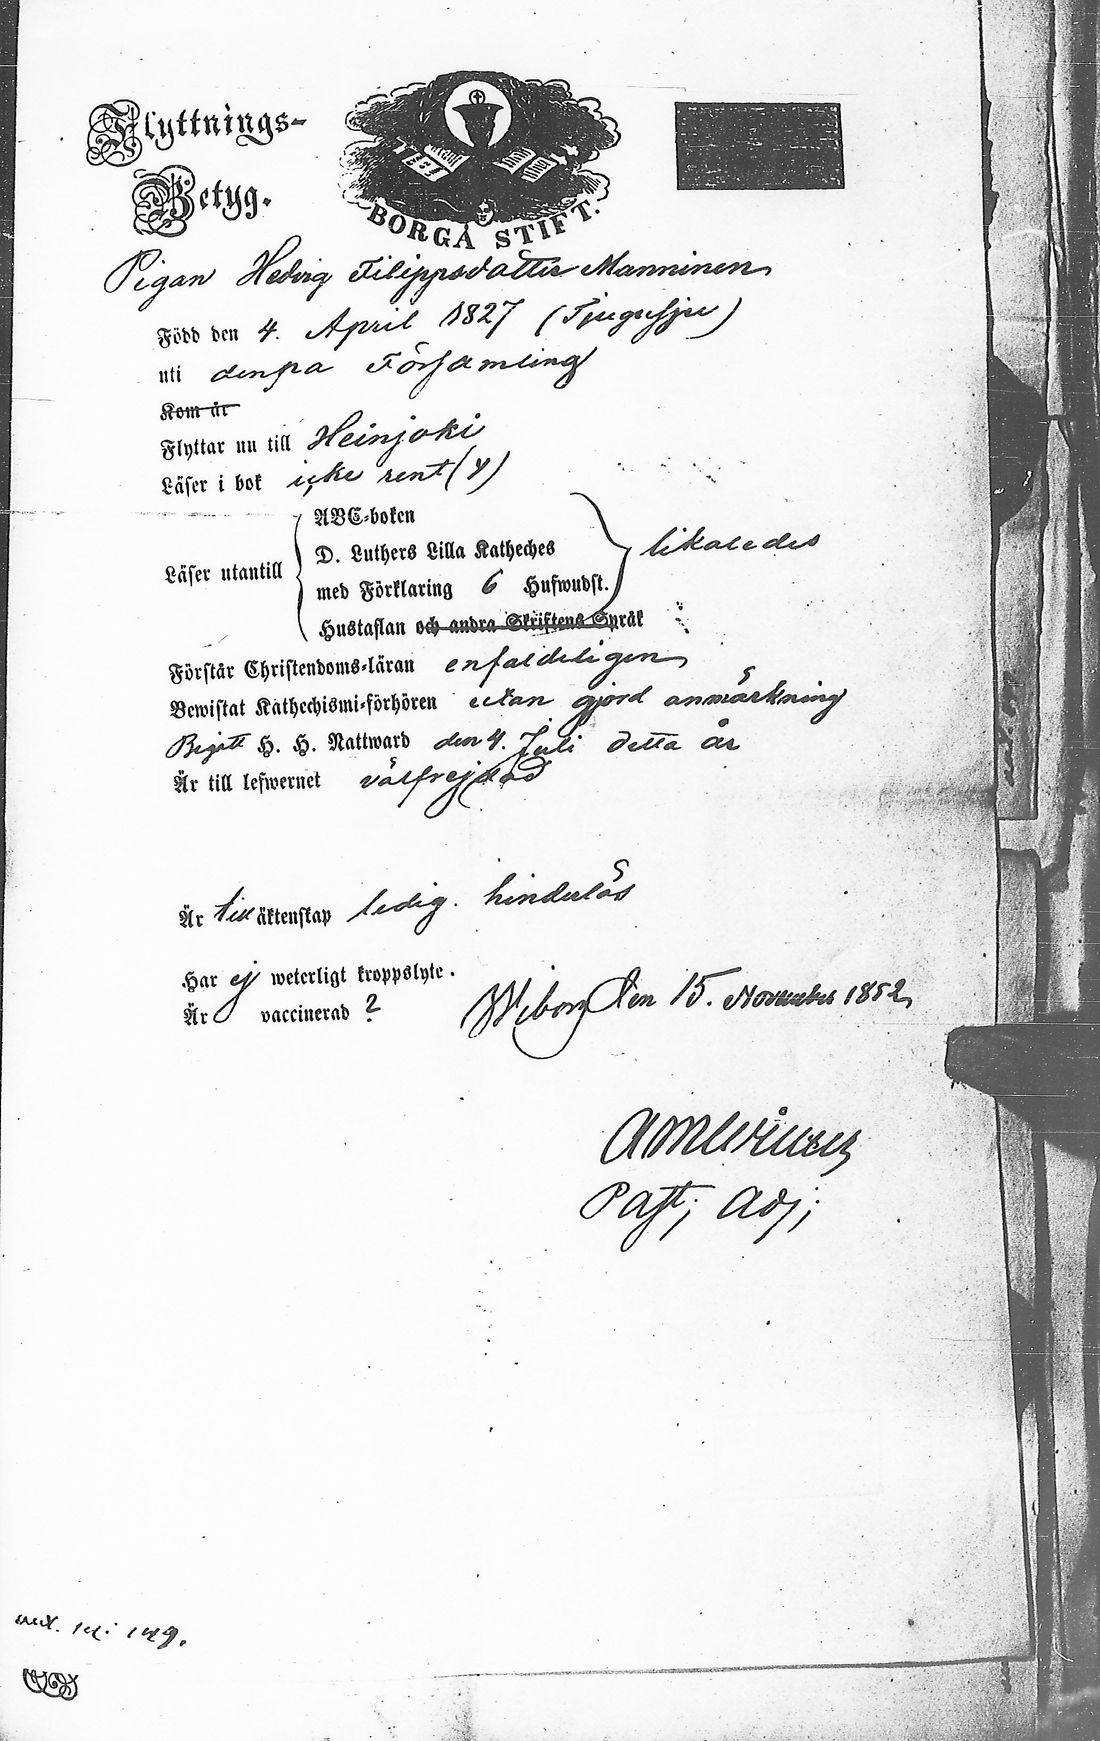 Flyttnings-
Betyg.
BORGÅ STIFT.
Pigan Hedvig Filippsdotter Manninen
Född den 4. April 1827 (Tjugusju)
uti denna Församling
Kom år
Flyttar nu till Heinjoki
Läser i bok icke rent (4)
ABC-boken
D. Luthers Lilla Katheches
likaledes
Läser utantill
med Förklaring 6 Hufwudst.
Hustaflan och andra Skriftens Språk
Förstår Christendoms-läran enfaldeligen
Bewistat Kathechismi-förhören utan gjord anmärkning
Begått H. H. Nattward den 4. Juli detta år
Är till lefwernet välfrejdad
Är till äktenskap ledig. hinderlös
Har ej weterligt kroppslyte.
Är vaccinerad ?
Wiborg Den 15. November 1852
Past; Adj;
149.